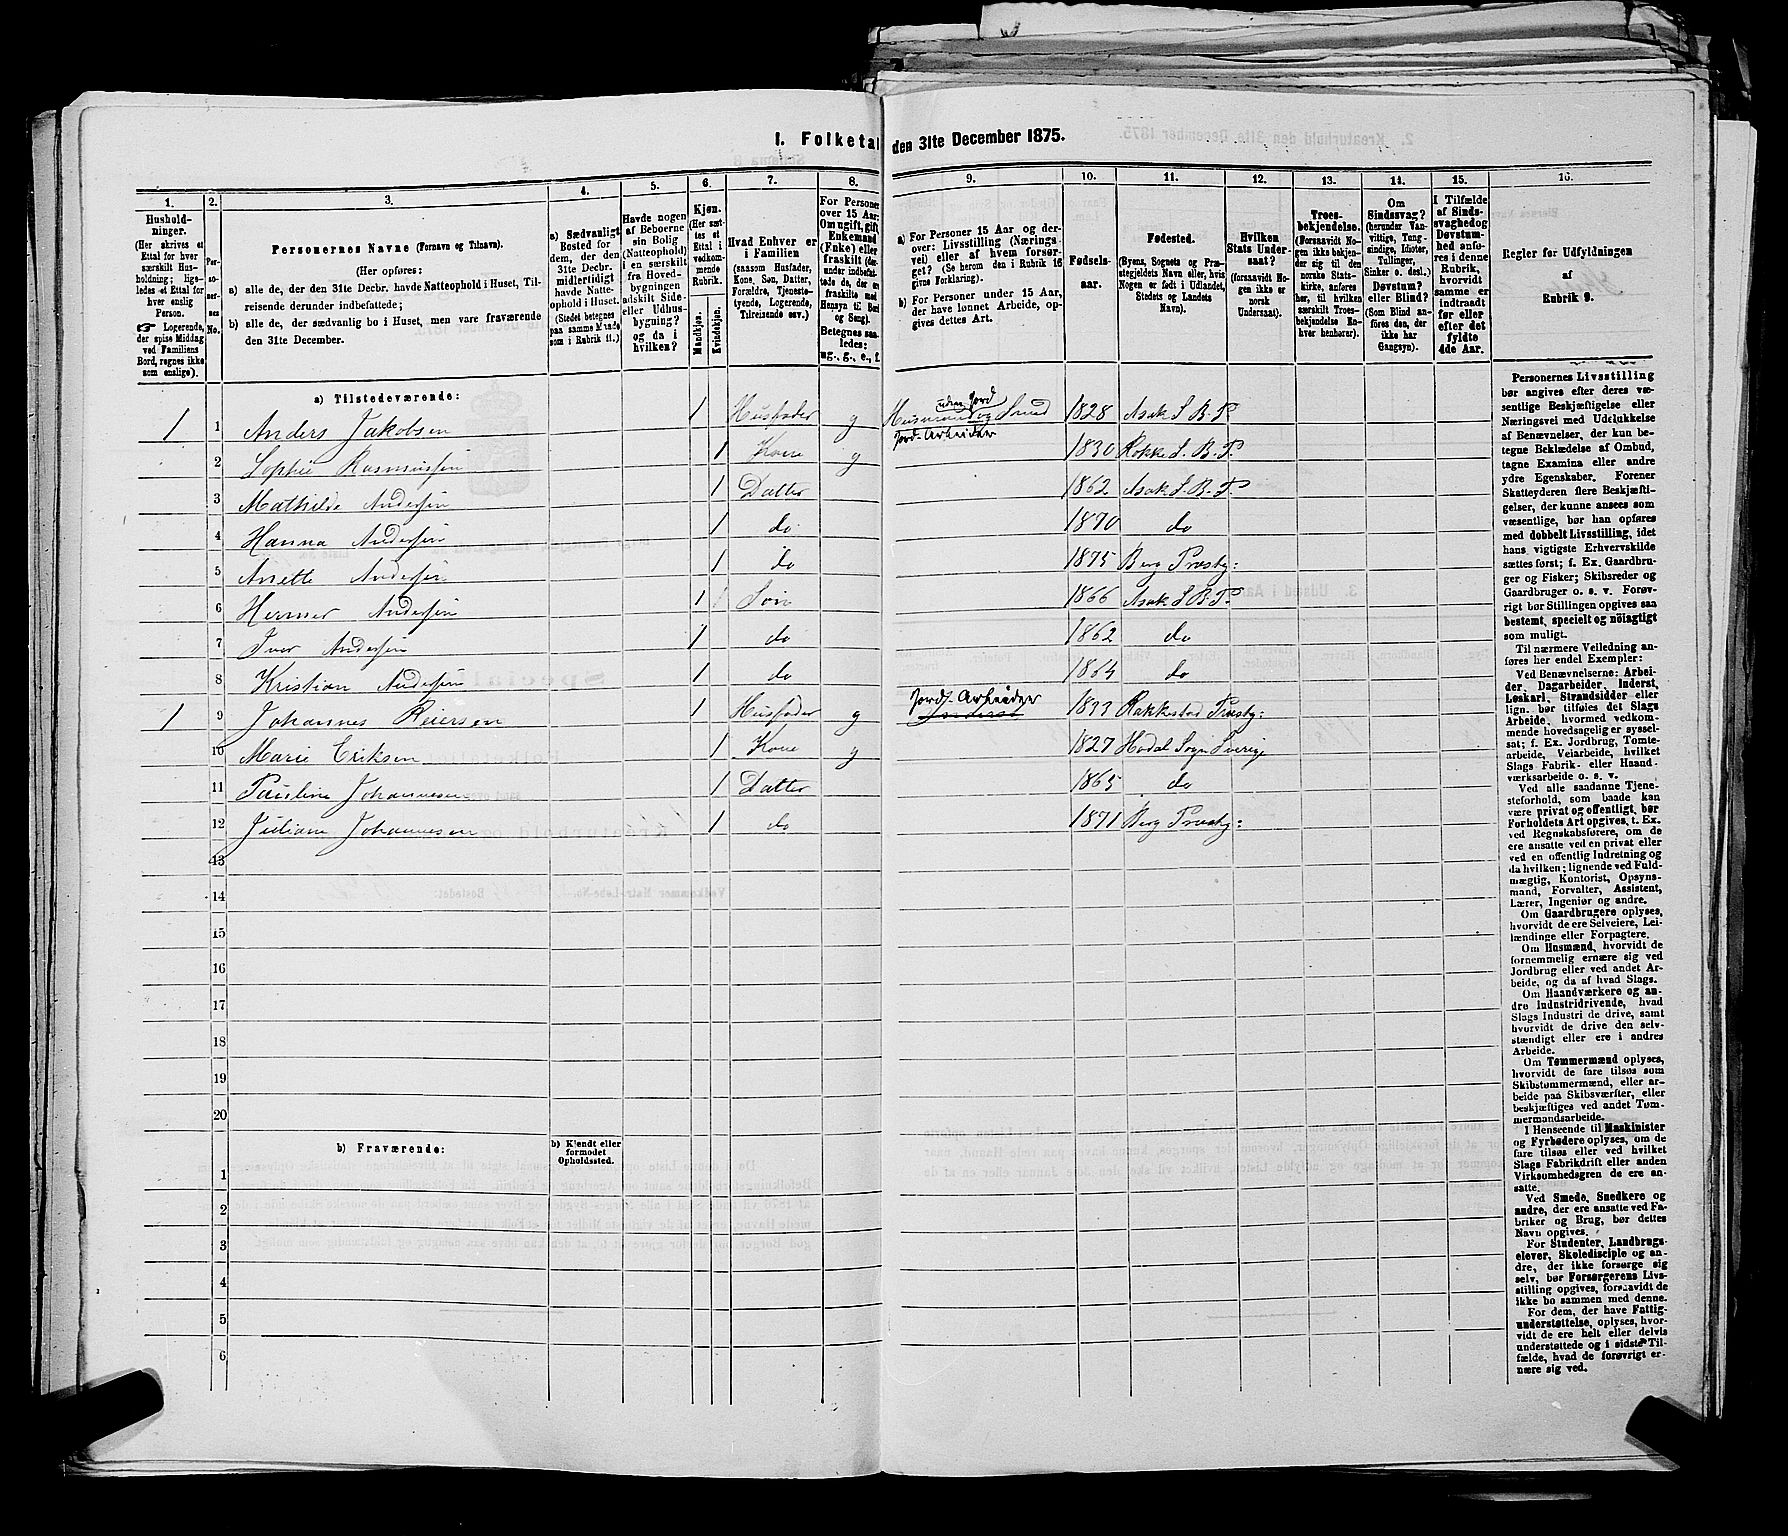 I. Folketal den 31te December 1875.
1. 2. 3. 4. 5. 6. 7. 8. 9. 10. 11. 12. 13. 14. 15. 16.
Husholdninger.
(Her skrives et
Ettal for hver
særskilt Husholdning;
ligeledes et Ettal for
hver enslig
Person.
☞ Logerende,
der spise Middag
ved Familiens
Bord, regnes ikke
som enslige).
Personernes No.
Personernes Navne (Fornavn og Tilnavn).
(Her opføres:
a) alle de, der den 31te Decbr. havde Natteophold i Huset, Tilreisende derunder indbefattede;
b) alle de, der sædvanlig bo i Huset, men vare fraværende
den 31te December.
a) Sædvanligt
Bosted for
dem, der den
31te Decbr.
midlertidigt
havde Natteophold i Huset.
(Stedet betegnes
paa samme Maade
som i Rubrik 11.)
Havde nogen
af Beboerne
sin Bolig
(Natteophold)
i en særskilt
fra Hovedbygningen
adskilt Side-
eller Udhusbygning?
og da i
hvilken?
Kjøn.
(Her sættes et
Ettal i
vedkommende
Rubrik.
Mandkjøn.
Kvindekjøn.
Hvad Enhver er
i Familien
(saasom Husfader,
Kone, Søn, Datter,
Forældre, Tjenestetyende, Logerende,
Tilreisende osv.)
For Personer
over 15 Aar:
Om ugift, gift,
Enkemand
(Enke) eller
fraskilt
Betegnes saaledes:
ug., g., e., f.
a) For Personer 15 Aar og derover: Livsstilling (Næringsvei) eller af hvem forsørget? (Se herom den i Rubrik 16
givne Forklaring).
b) For Personer under 15 Aar,
der have lønnet Arbeide, opgives dettes Art.
Fødselsaar.
Fødested.
(Byens, Sognets og Præstegjeldets Navn eller, hvis
Nogen er født i Udlandet,
Stedets og Landets
Navn).
Hvilken
Stats Undersaat?
(forsaavidt Nogen ikke er
norsk
Undersaat).
Troesbekjendelse.
(Forsaavidt Nogen ikke bekjender sig til den
norske Statskirke, anføres her, til hvilken
særskilt Troesbekjendelse Enhver henhører).
Om
Sindssvag?
(herunder Vanvittige, Tungsindige, Idioter,
Tullinger,
Sinker o. desl.)
Døvstum?
eller Blind?
(Som Blind anføres den, der
ikke har
Gangsyn).
I Tilfælde
af Sindssvaghed og
Døvstumhed anføres i denne
Rubrik,
hvorvidt
samme er
indtraadt
før eller
efter det
fyldte
4de Aar.
Regler for Udfyldningen
af
Rubrik 9.
a) Tilstedeværende:
1 1 Anders Jakobsen 1 Husfader g Husmand uden Jord og Smed Jord-Arbeider 1828 Asak S. B. P.
2 Sophie Rasmussen 1 Kone g 1830 Rokke S. B. P.
3 Mathilde Andersen 1 Datter 1862 Asak S. B. P.
4 Hanna Andersen 1 do 1870 do
5 Anette Andersen 1 do 1875 Berg Præstg:
6 Hermer Andersen 1 Søn 1866 Asak S. B. P.
7 Iver Andersen 1 do 1862 do
8 Kristian Andersen 1 do 1864 do
1 9 Johannes Reiersen 1 Husfader g Jord-Arbeider 1833 Rakkestad Præstg:
10 Marie Eriksen 1 Kone g 1827 Hodal Sogn Sverige
11 Pauline Johannesen 1 Datter 1865 do
12 Juliane Johannesen 1 do 1871 Berg Præstg:
13
14
15
16
17
18
19
20
b) Fraværende:
b) Kjendt eller
formodet
Opholdssted.
1
2
3
4
5
6
Personernes Livsstilling
bør angives efter deres væsentlige Beskjæftigelse eller
Næringsvei med Udelukkelse
af Benævnelser, der kun betegne Beklædelse af Ombud,
tagne Examina eller andre
ydre Egenskaber. Forener
Skatteyderen flere Beskjæftigelser, der kunne ansees som
væsentlige, bør han opføres
med dobbelt Livsstilling, idet
hans vigtigste Erhvervskilde
sættes først; f. Ex. Gaardbruger og Fisker; Skibsreder og
Gaardbruger o. s. v. Forøvrigt bør Stillingen opgives saa
bestemt, specielt og nøiagtigt
som muligt.
Til nærmere Veiledning anføres her endel Exempler:
Ved Benævnelserne: Arbeider, Dagarbeider, Inderst,
Løskarl, Strandsidder eller
lign. bør tilføies det Slags
Arbeide, hvormed vedkommende hovedsagelig er sysselsat; f. Ex. Jordbrug, Tomtearbeide, Veiarbeide, hvilket
Slags Fabrik- eller Haandværksarbeide o. s. v.
Ved alle saadanne Tjenesteforhold, som baade kan
være privat og offentligt, bør
Forholdets Art opgives, t. Ex.
ved Regnskabsførere, om de
ere ansatte ved en privat eller
ved en offentlig Indretning og
da hvilken; lignende ved Fuldmægtig, Kontorist, Opsynsmand, Forvalter, Assistent,
Lærer, Ingeniør og andre.
Om Gaardbrugere oplyses,
hvorvidt de ere Selveiere, Leilændinge eller Forpagtere.
Om Husmænd, hvorvidt de
fornemmelig ernære sig ved
Jordbrug eller ved andet Arbeide, og da af hvad Slags.
Om Haandværkere og andre Industridrivende, hvad
Slags Industri de drive, samt
hvorvidt de drive den selvstændigt eller ere i andres
Arbeide.
Om Tømmermænd oplyses,
hvorvidt de fare tilsøs som
Skibstømmermænd, eller arbeide paa Skibsværfter, eller
beskjæftiges ved andet Tømmermandsarbeide.
I Henseende til Maskinister
og Fyrbødere oplyses, om de
fare tilsøs eller ved hvilket
Slags Fabrikdrift eller anden
Virksomhedsgren de ere ansatte.
Ved Smede, Snedkere og
andre, der ere ansatte ved Fabriker og Brug, bør dettes
Navn opgives.
For Studenter, Landbrugselever, Skoledisciple og andre, der ikke forsørge sig
selv, bør Forsørgerens Livsstilling opgives, forsaavidt de
ikke bo sammen med denne.
For dem, der have Fattigunderstøttelse, oplyses, hvorvidt de ere helt eller delvis
understøttede og i sidste Tilfælde, hvad de forøvrigt ernære sig ved.